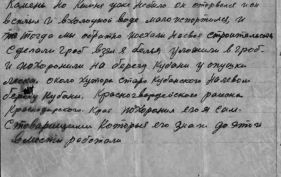 Камень но камня уже небыло он оторвался и он
всплыл и в холодной воде мало испортился, и
мы тогда обратно поехали на свое строительство
сделали гроб взяли белья уложили в гроб
и похоронили на берегу Кубани у опушки
леса. около хутора Старо Кубанского на левом
берегу Кубани. Красногвардейского района
Краснодарского Края похоронил его я сам
с товарищами которые его знали до этого
вместе работали